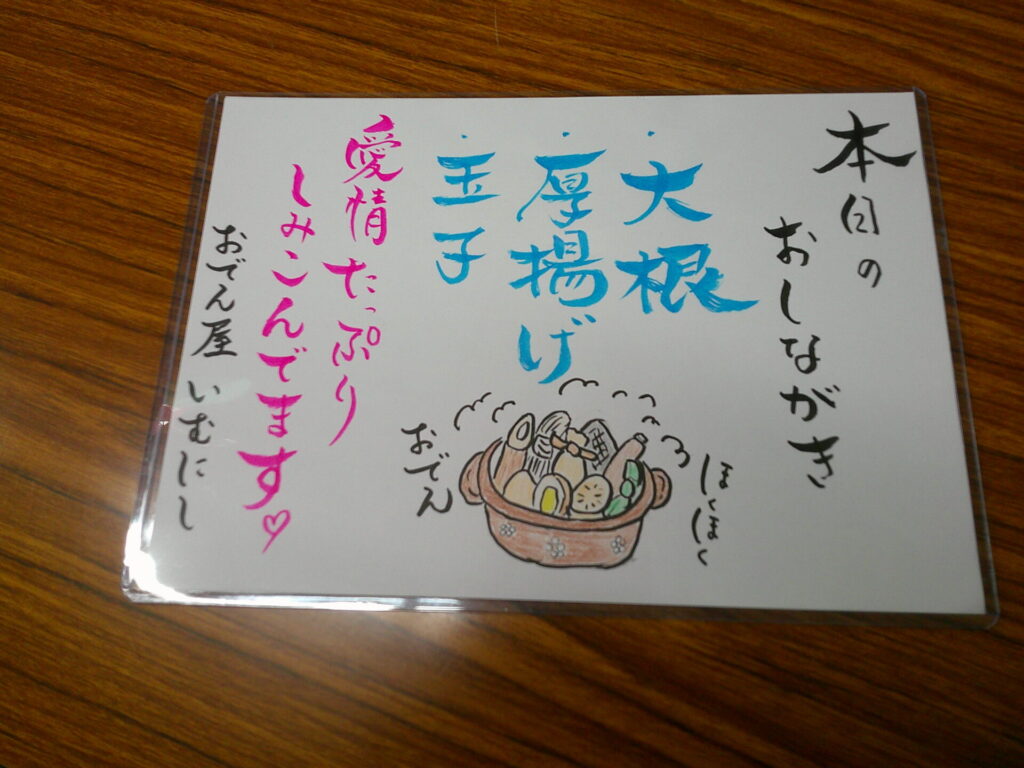 本日の
おしながき
・大根
・厚揚げ
・玉子
ほくほく
おでん
愛情たっぷり
しみこんでます♡
おでん屋 いむにし